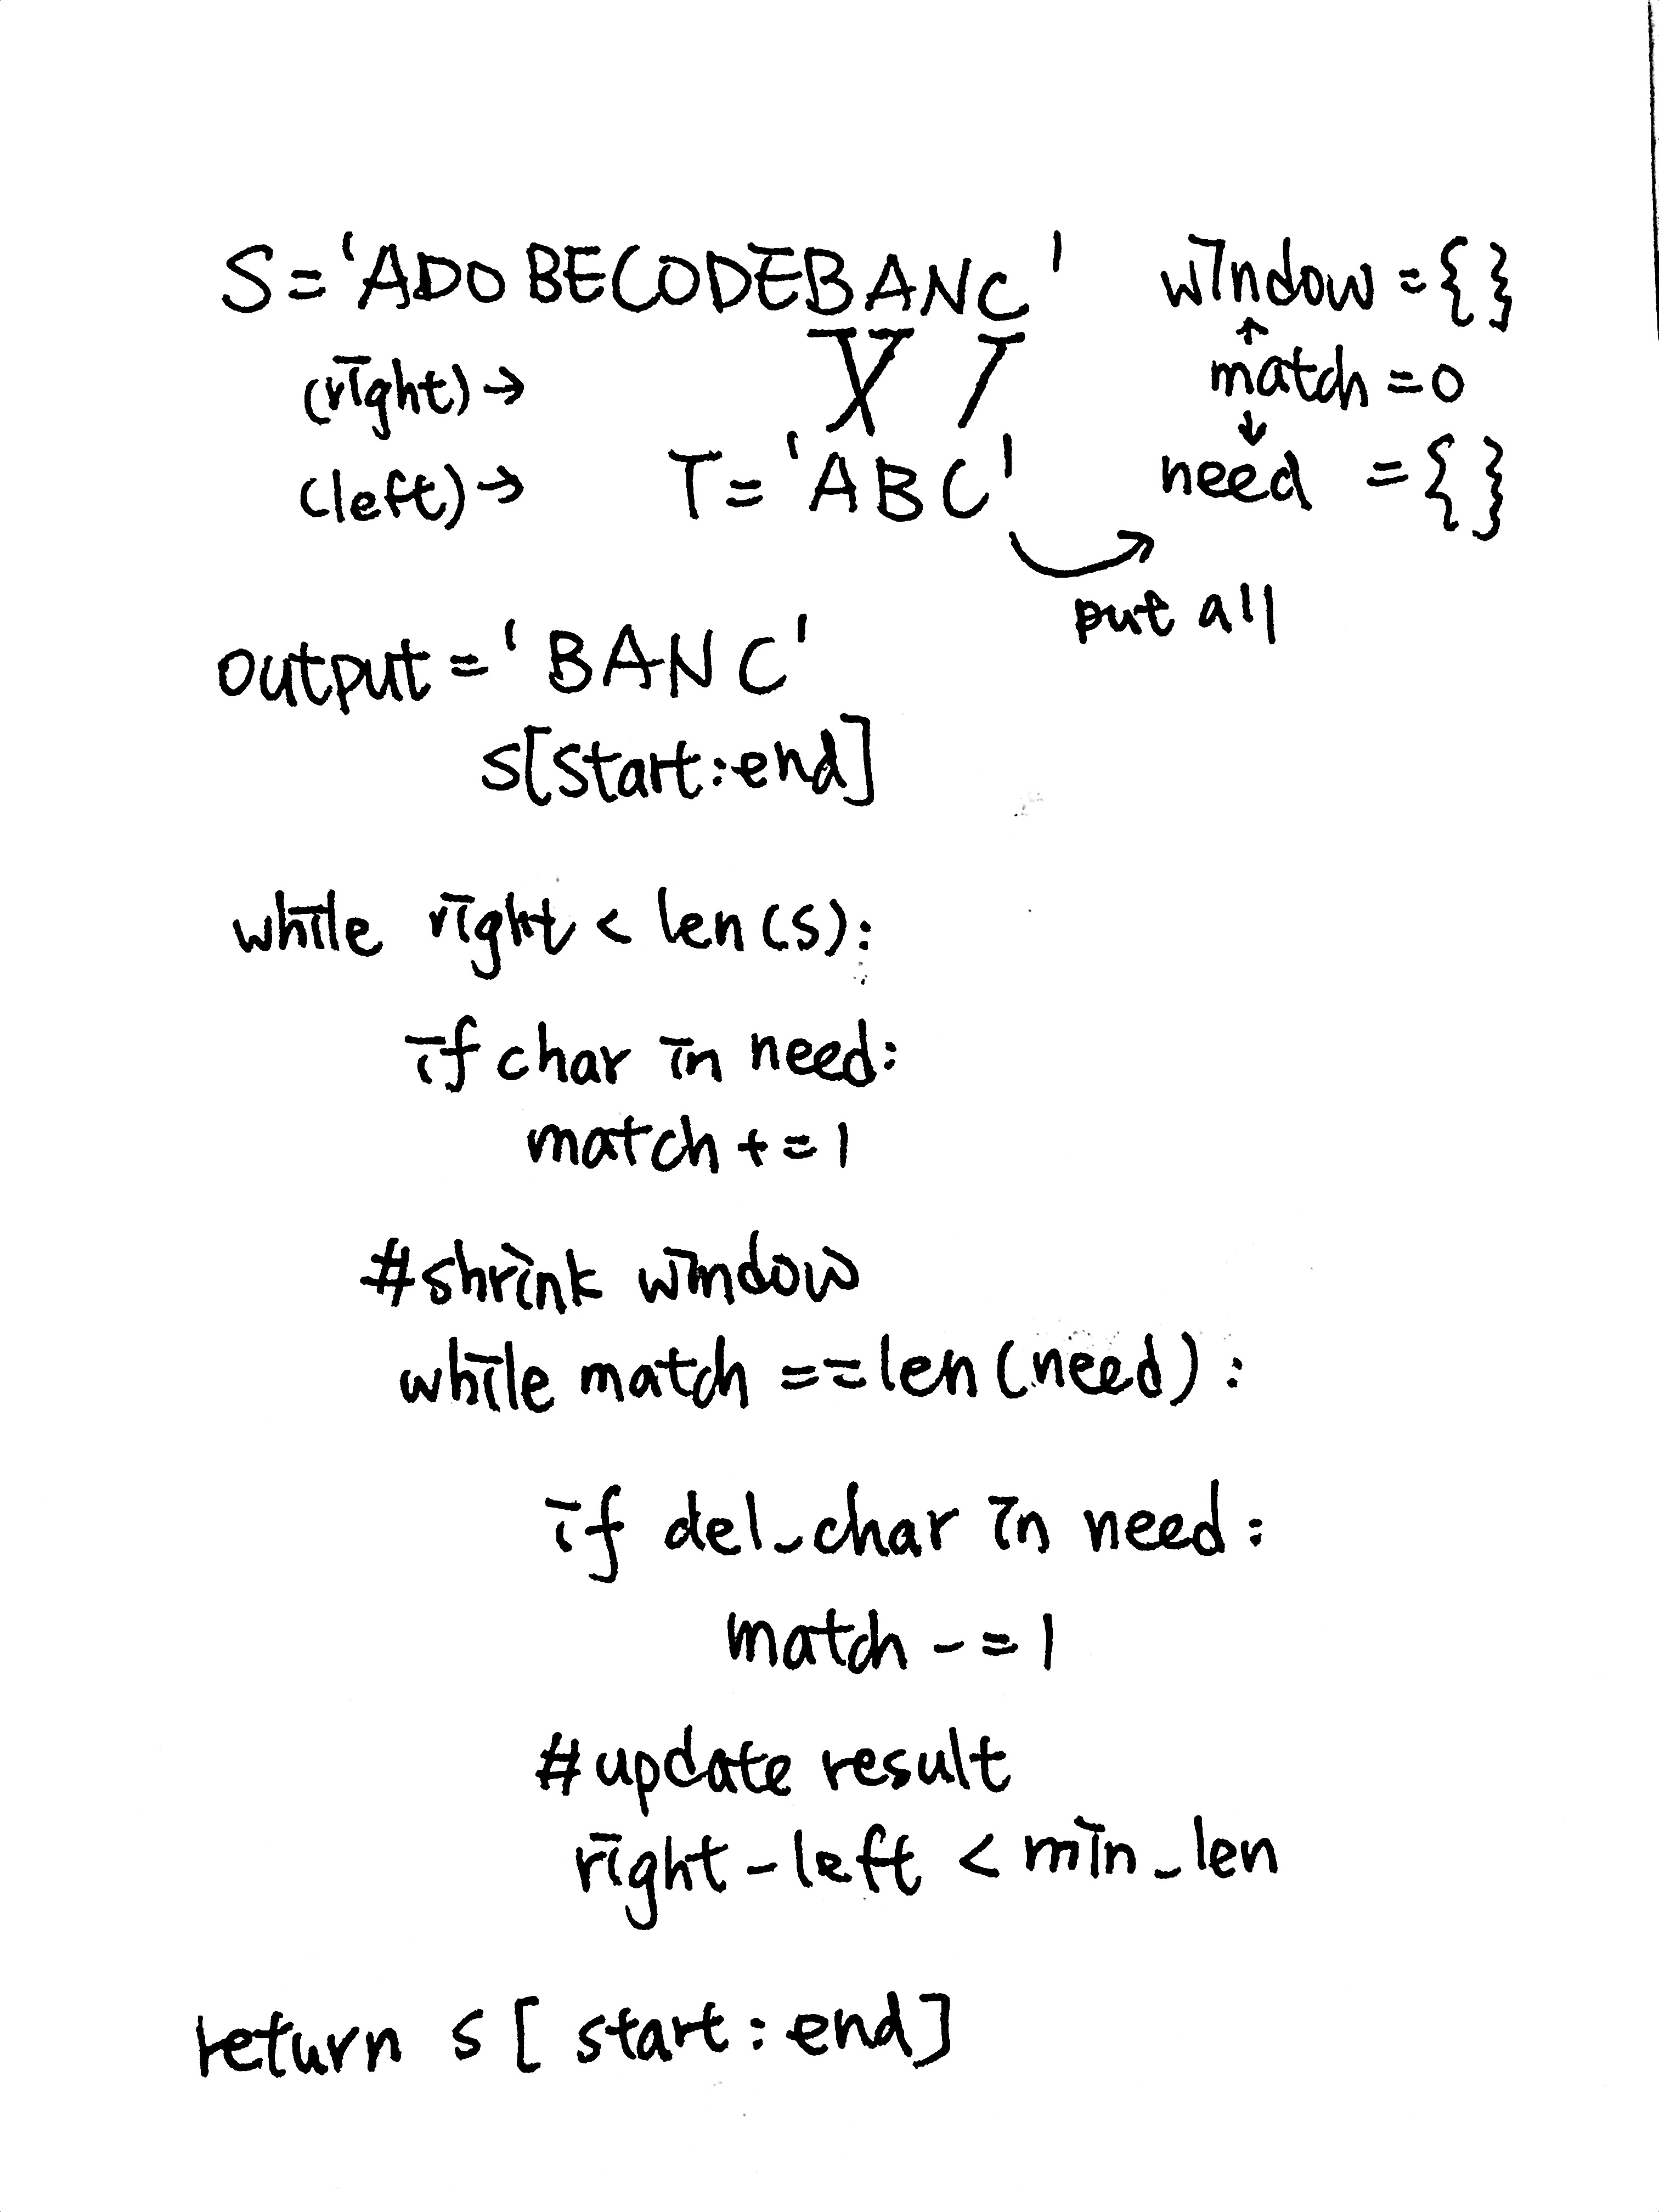 S='ADOBECODEBANC' window={}
(right)→ match=0
(left)→ T='ABC' need={}
put all
output='BANC'
s[start:end]
while right<len(s):
if char in need:
match+=1
#shrink window
while match==len(need):
if del_char in need:
match-=1
#update result
right-left<min_len
return s[start:end]